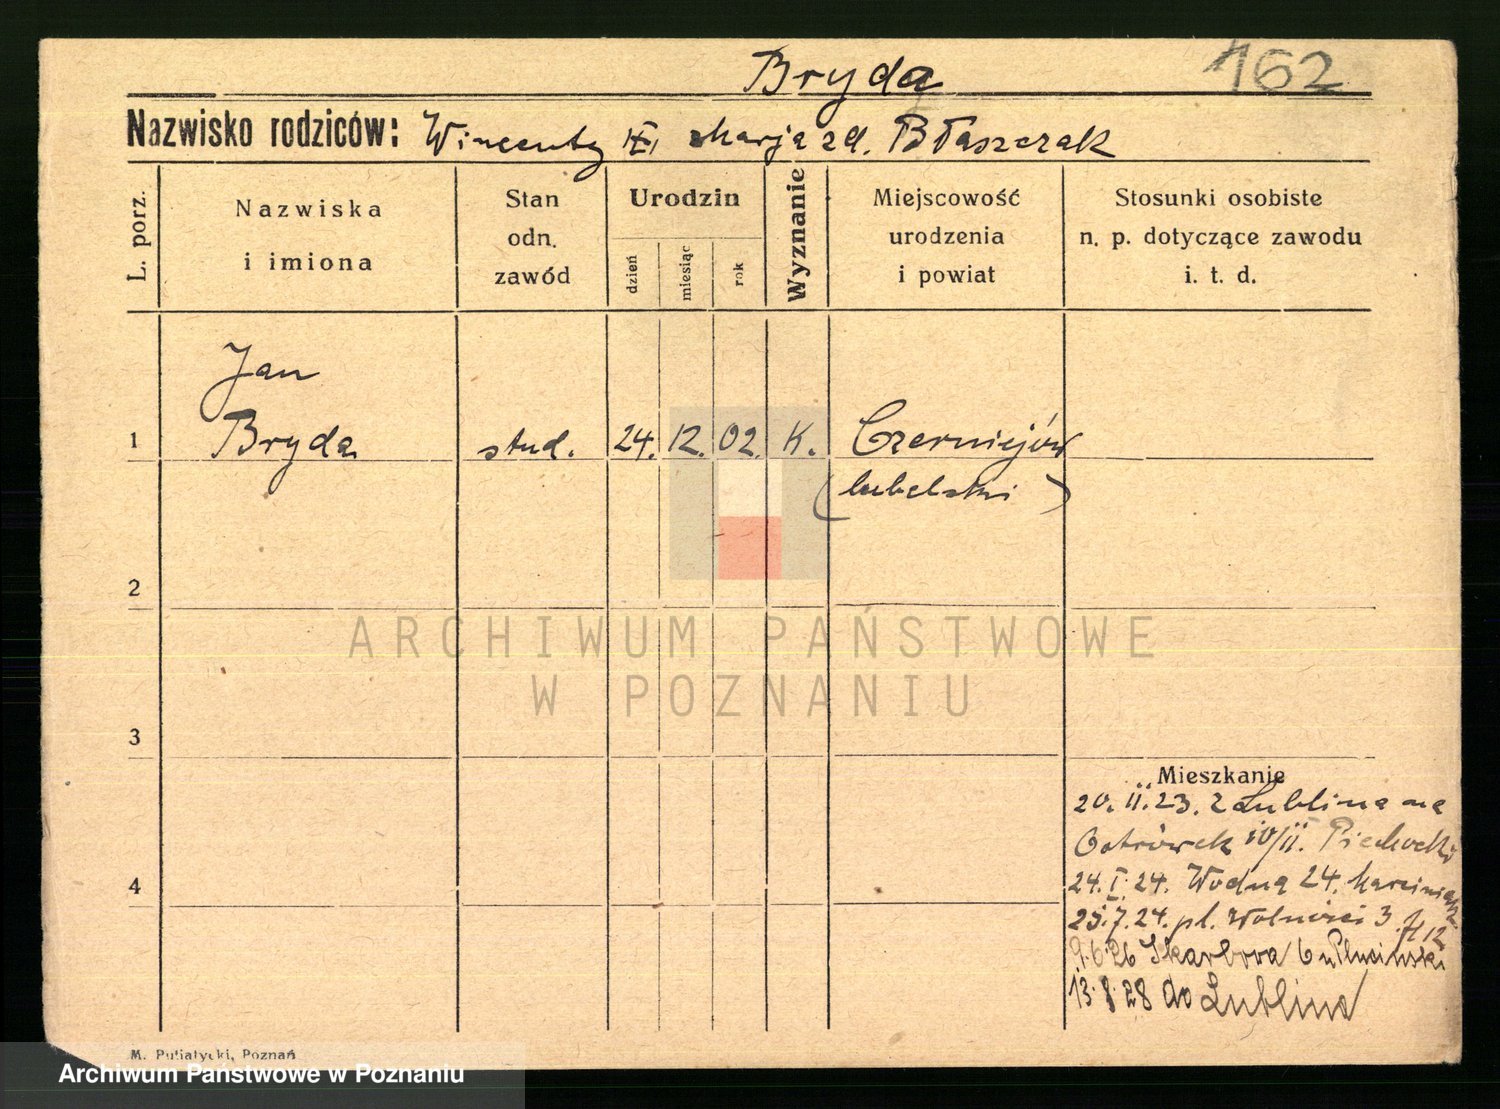 Bryda
162
Nazwisko rodziców: Wincenty Marja zd. Błaszczak
L. porz.
Nazwiska
i imiona
Stan
odn.
zawód
Urodzin
dzień
miesiąc
rok
Wyznanie
Miejscowość
urodzenia
i powiat
Stosunki osobiste
n. p. dotyczące zawodu
i. t. d.
Jan
1 Bryda stud. 24. 12. 02. K. Czerniejów
(lubelski)
2
ARCHIWUM PAŃSTWOWE
W POZNANIU
3
Mieszkanie
20.II.23. z Lublina na
Ostrówek 10/II. Piechocki
4
24.I.24. Wodną 24. Marciniak
25.7.24. pl. Wolności 3. H12
9.6.26 Skarbowa 6 u Plucinski
13.8.28 do Lublina
M. Putiatycki, Poznań
Archiwum Państwowe w Poznaniu